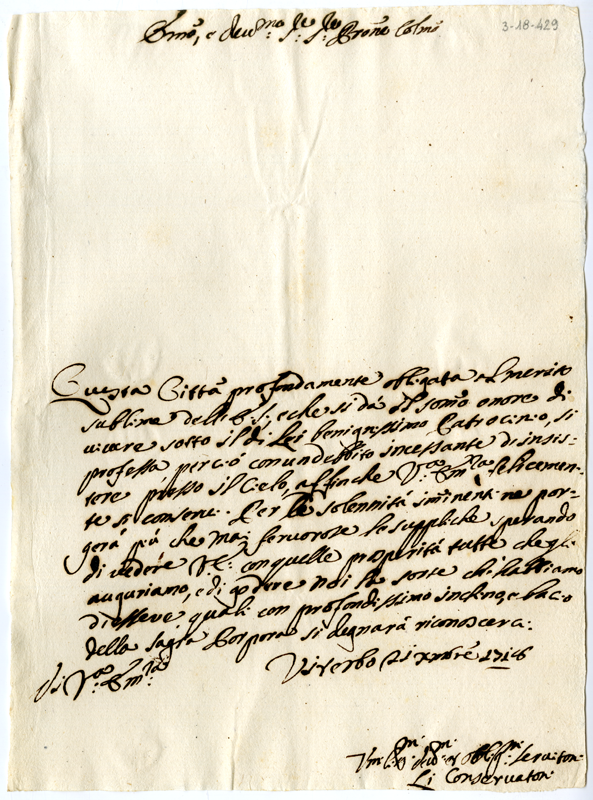 3-18-429
Emo, e Revmo Sr. Sr. Prone Colmo
Questa Città profondamente obligata al merito
sublime dell'E. S., e che si dà il somo onore di
vivere sotto il di Lei benignissimo Patrocinio, si
professa perciò con un debbito incessante d'insis-
tere presso il Cielo, affinche Va. Emza felicemen-
te si conservi. Per le solennità iminenti ne por-
gerà più che mai fervorose le suppliche sperando
di vedere V. E. con quelle prosperità tutte che gli
auguriamo, e di godere noi la sorte che habbiamo
d'essere, quali con profondissimo inchino, e bacio
della sagra Porpora si degnarà riconoscerci.
di Va. Emza
Viterbo 21 xmbre 1718
Li Conservatori